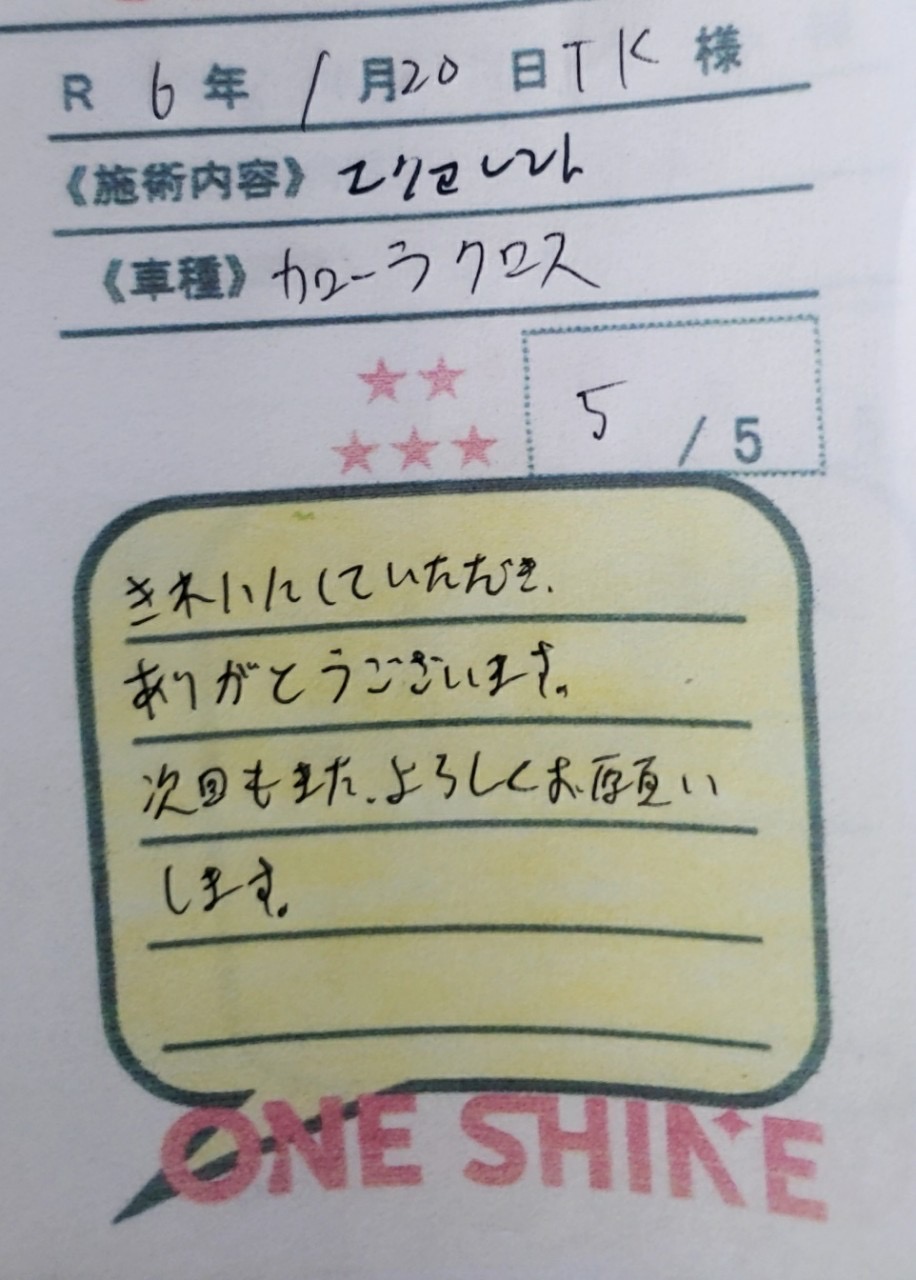 R 6年 1月20日 TK 様
《施術内容》 エクセレント
《車種》 カローラクロス
5 / 5
きれいにしていただき、
ありがとうございます。
次回もまた、よろしくお願い
します。
ONE SHINE